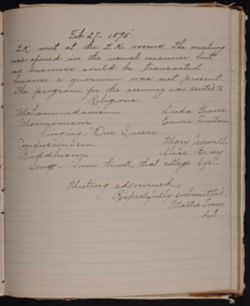 Feb. 27, 1898.
L.K. met at the L.K. rooms. The meeting
was opened in the usual manner but
no business could be transacted
because a quorum was not present.
The program for the evening was devoted to
Religions
Mohammedanism
Mormonism Emma
Singing - "Our Queen"
Confucianism Mary
Buddhism Alice Gray
Song - Some think that college life
Meeting adjourned.
Respectfully submitted,
Mattie